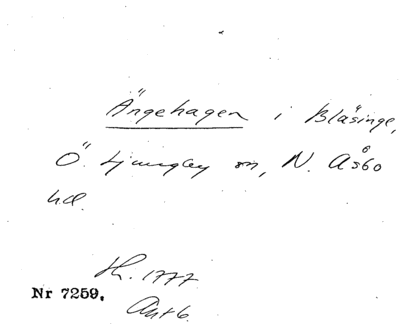 Ängehagen i Bläsinge,
Ö. Ljungby sn, N. Åsbo
hd.
Sk. 1777
Nr 7259.